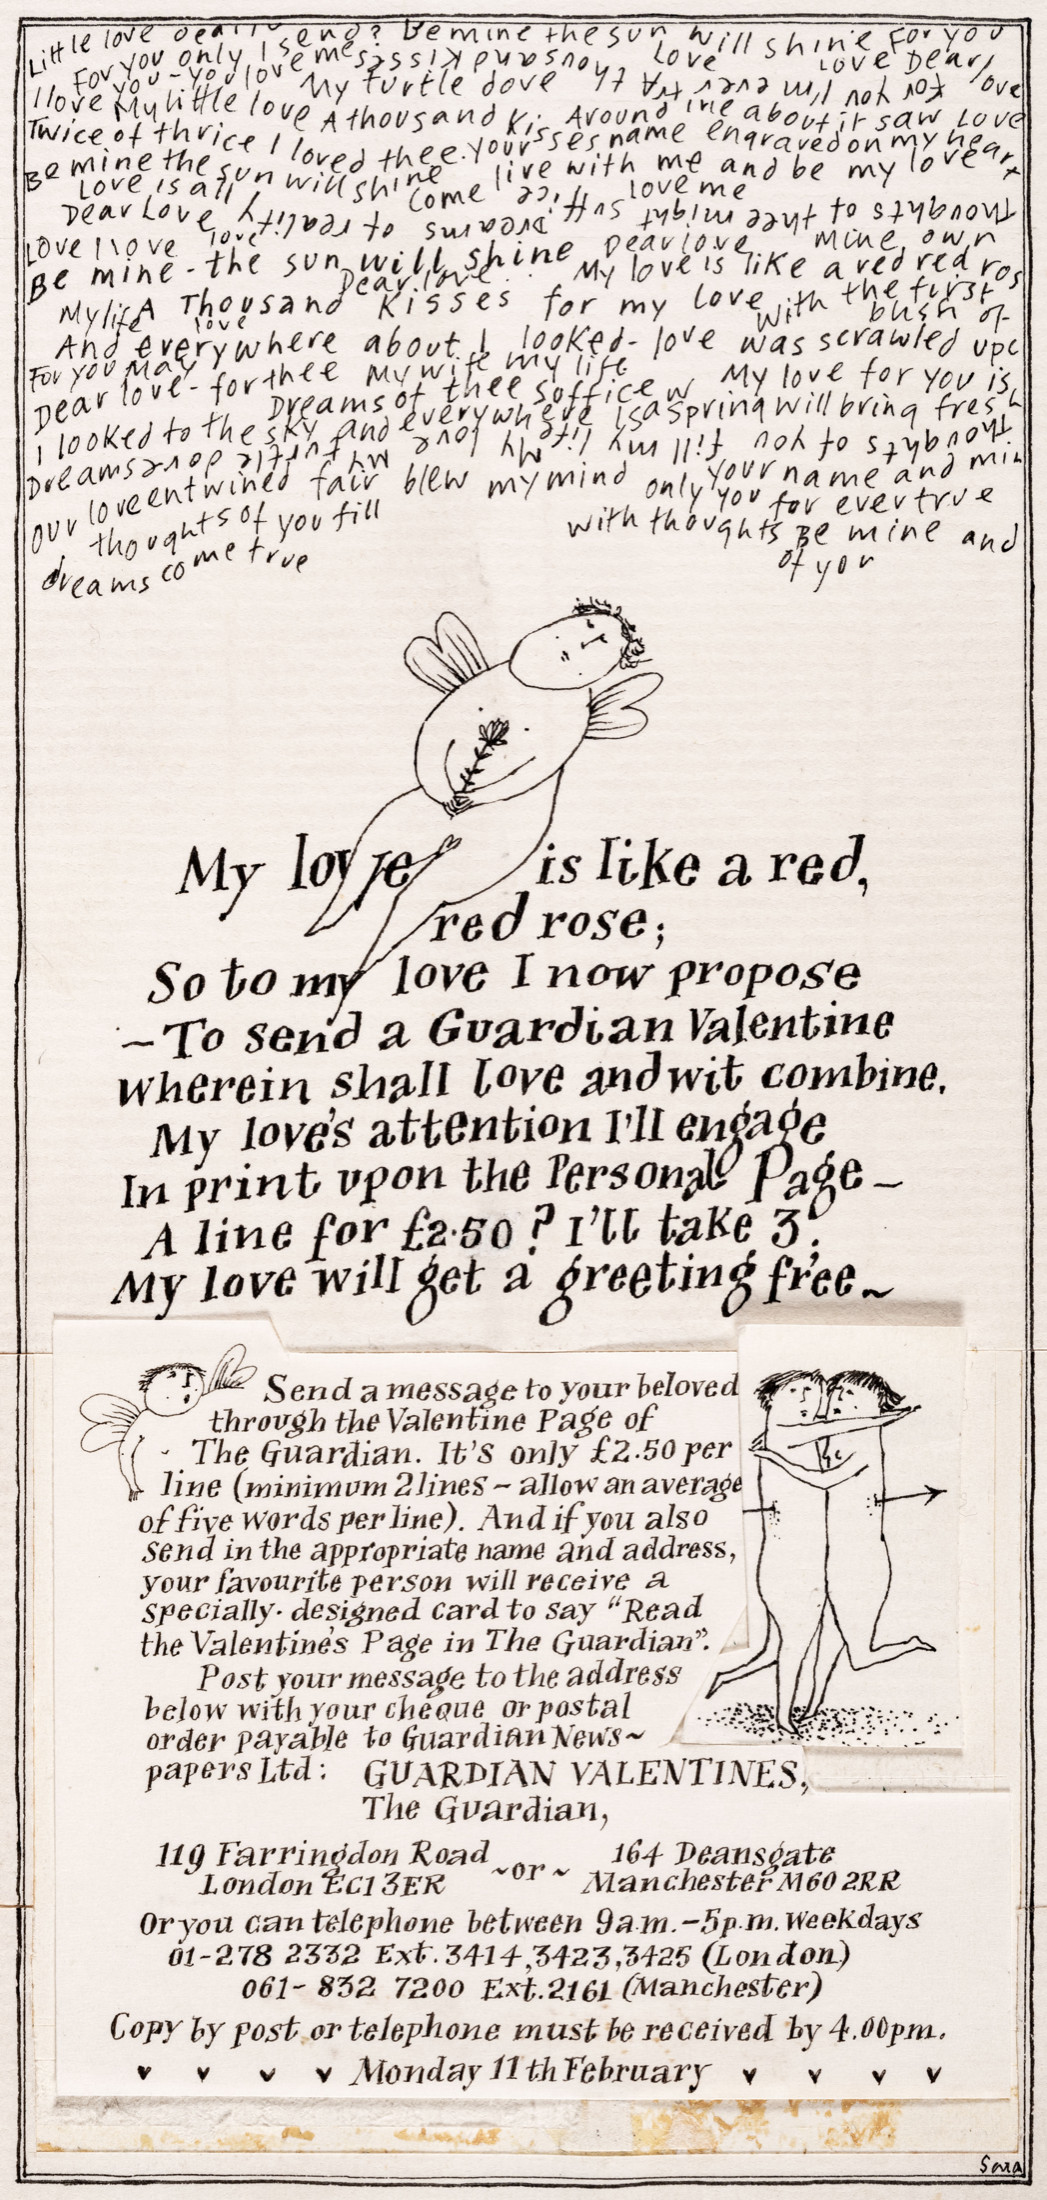 Little love send? Be mine the sun will shine For you
For you only I love
For you - you love me thousand kisses love Love Dear love
I love My turtle dove For you I'm ever
My little love A thousand Kisses Around me about it saw Love
Twice of thrice I loved thee. your name engraved on my heart
Be mine the sun will shine live with me and be my love
Love is all Come suffice love me
Dear Love Dreams to reality Thoughts of thee might
Love I love love Dear love mine own
Be mine - the sun will shine My love is like a red red ros
Dear love
My life A Thousand Kisses for my love with the first
love blush of
And everywhere about I looked - love was scrawled upo
For you May My wife my life
Dear love - for thee Dreams of thee suffice My love for you is
I looked to the sky and everywhere is a Spring will bring fresh
Dreams turtle doves My love My life Thoughts of you fill my
Our love entwined fair blew my mind your name and min
only you for ever true
thoughts of you fill with thoughts Be mine and
dreams come true of you
My love is like a red,
red rose;
So to my love I now propose
– To send a Guardian Valentine
wherein shall love and wit combine.
My love's attention I'll engage
In print upon the Personal Page –
A line for £2·50? I'll take 3.
My love will get a greeting free ~
Send a message to your beloved
through the Valentine Page of
The Guardian. It's only £2.50 per
line (minimum 2 lines – allow an average
of five words per line). And if you also
send in the appropriate name and address,
your favourite person will receive a
specially-designed card to say "Read
the Valentine's Page in The Guardian".
Post your message to the address
below with your cheque or postal
order payable to Guardian News~
papers Ltd: GUARDIAN VALENTINES,
The Guardian,
119 Farringdon Road ~or~ 164 Deansgate
London EC1 3ER Manchester M60 2RR
Or you can telephone between 9a.m.–5p.m. Weekdays
01-278 2332 Ext. 3414, 3423, 3425 (London)
061-832 7200 Ext. 2161 (Manchester)
Copy by post or telephone must be received by 4.00pm.
Monday 11th February
Sara